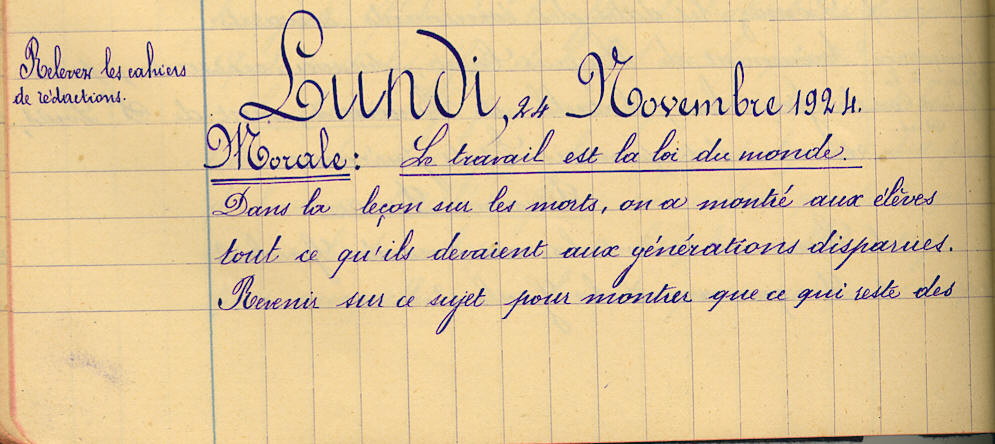 Relever les cahiers
de rédactions.
Lundi, 24 Novembre 1924.
Morale: Le travail est la loi du monde.
Dans la leçon sur les morts, on a montré aux élèves
tout ce qu'ils devaient aux générations disparues.
Revenir sur ce sujet pour montrer que ce qui reste des